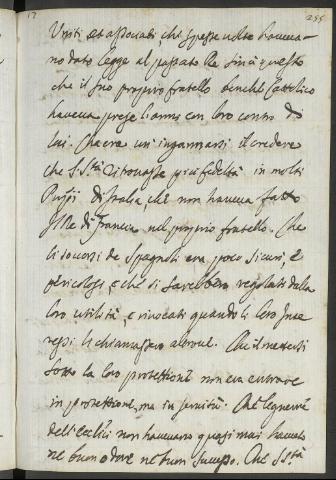 17 255
Uniti, et associati, chi spesse volte haveva-
no dato legge al passato Re sin à questo
che il suo proprio fratello benche Cattolico
haveva prese l'armi con loro contro di
lui. Che era un' ingannarsi il credere
che S. S.tà ritrovasse più fedeltà in molti
Prñpi d'Italia, che non haveva fatto
Il Re di Francia nel proprio fratello. Che
li soccorsi de Spagnoli era poco sicuri, e
pericolosi, e che si sarebbero regolati dalla
loro utilità, e rivocati quando li loro Inte
ressi li chiamassero altrove. Che il mettersi
sotto la loro protettione non era entrare
in protettione, ma in servitù. Che le guerre
dell' Eccl.ci non havevano quasi mai havuto
ne buon odore ne buon successo. Che S. S.tà